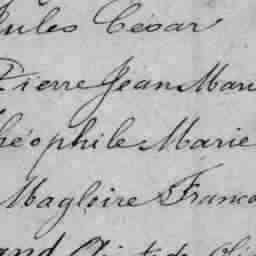 Jules César
Pierre Jean Mari
héophile Marie
Magloire Franco